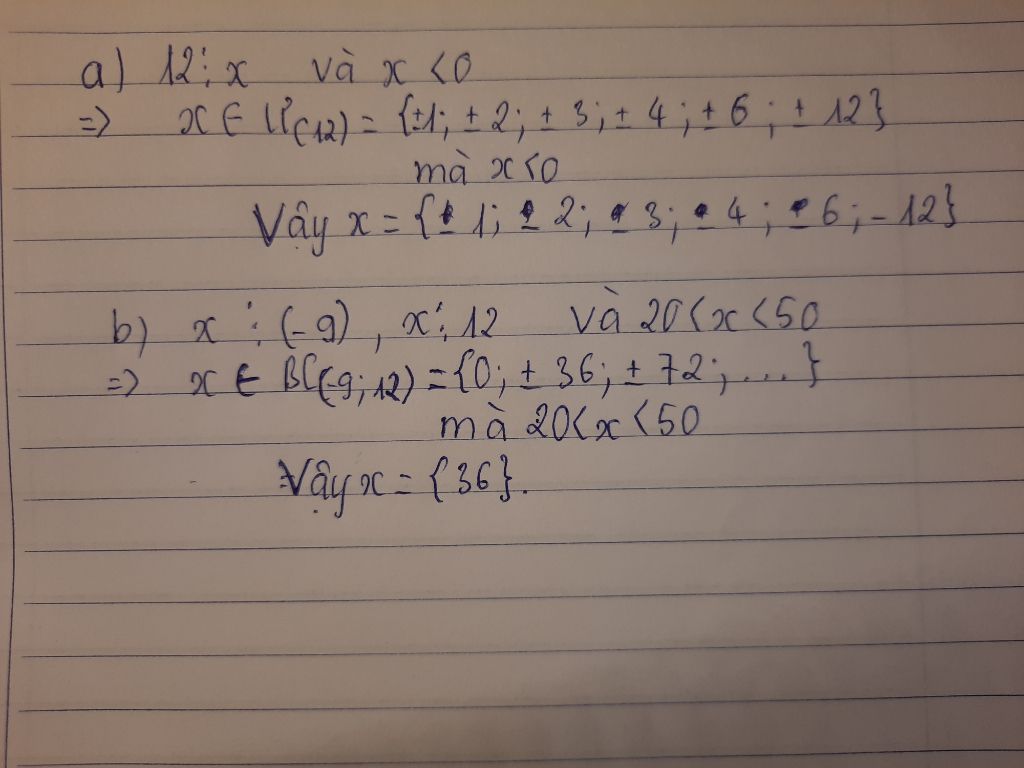 a) 12 ⋮ x và x < 0
=> x ∈ Ư(12) = {±1; ± 2; ± 3; ± 4; ± 6; ± 12}
mà x < 0
Vậy x = {- 1; - 2; - 3; - 4; - 6; - 12}
b) x ⋮ (-9), x ⋮ 12 và 20 < x < 50
=> x ∈ BC(-9; 12) = {0; ± 36; ± 72; ...}
mà 20 < x < 50
Vậy x = {36}.